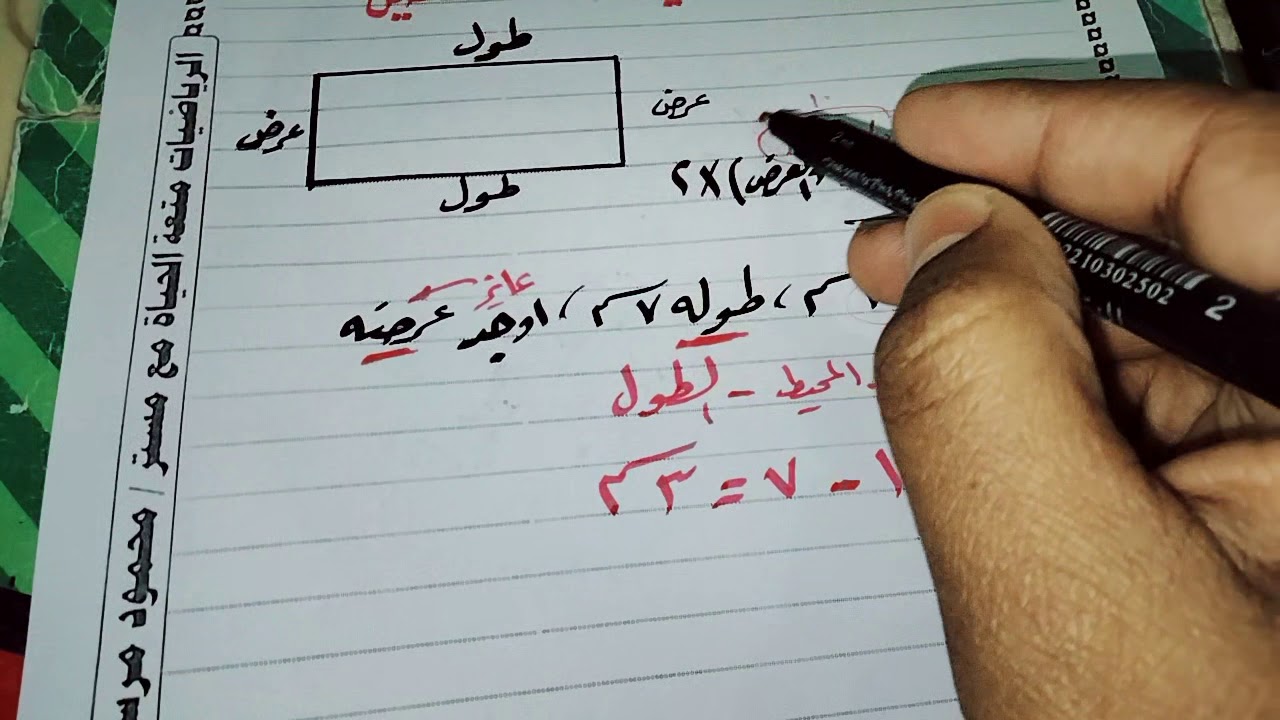 طول
عرض
عرض
طول
العرض) ×٢
٢سم ، طوله ٧سم ، اوجد عرضه
عايز
المحيط - الطول
١ - ٧ = ٣سم
الرياضيات متعة الحياة مع مستر / محمود مرس
2210302502
2